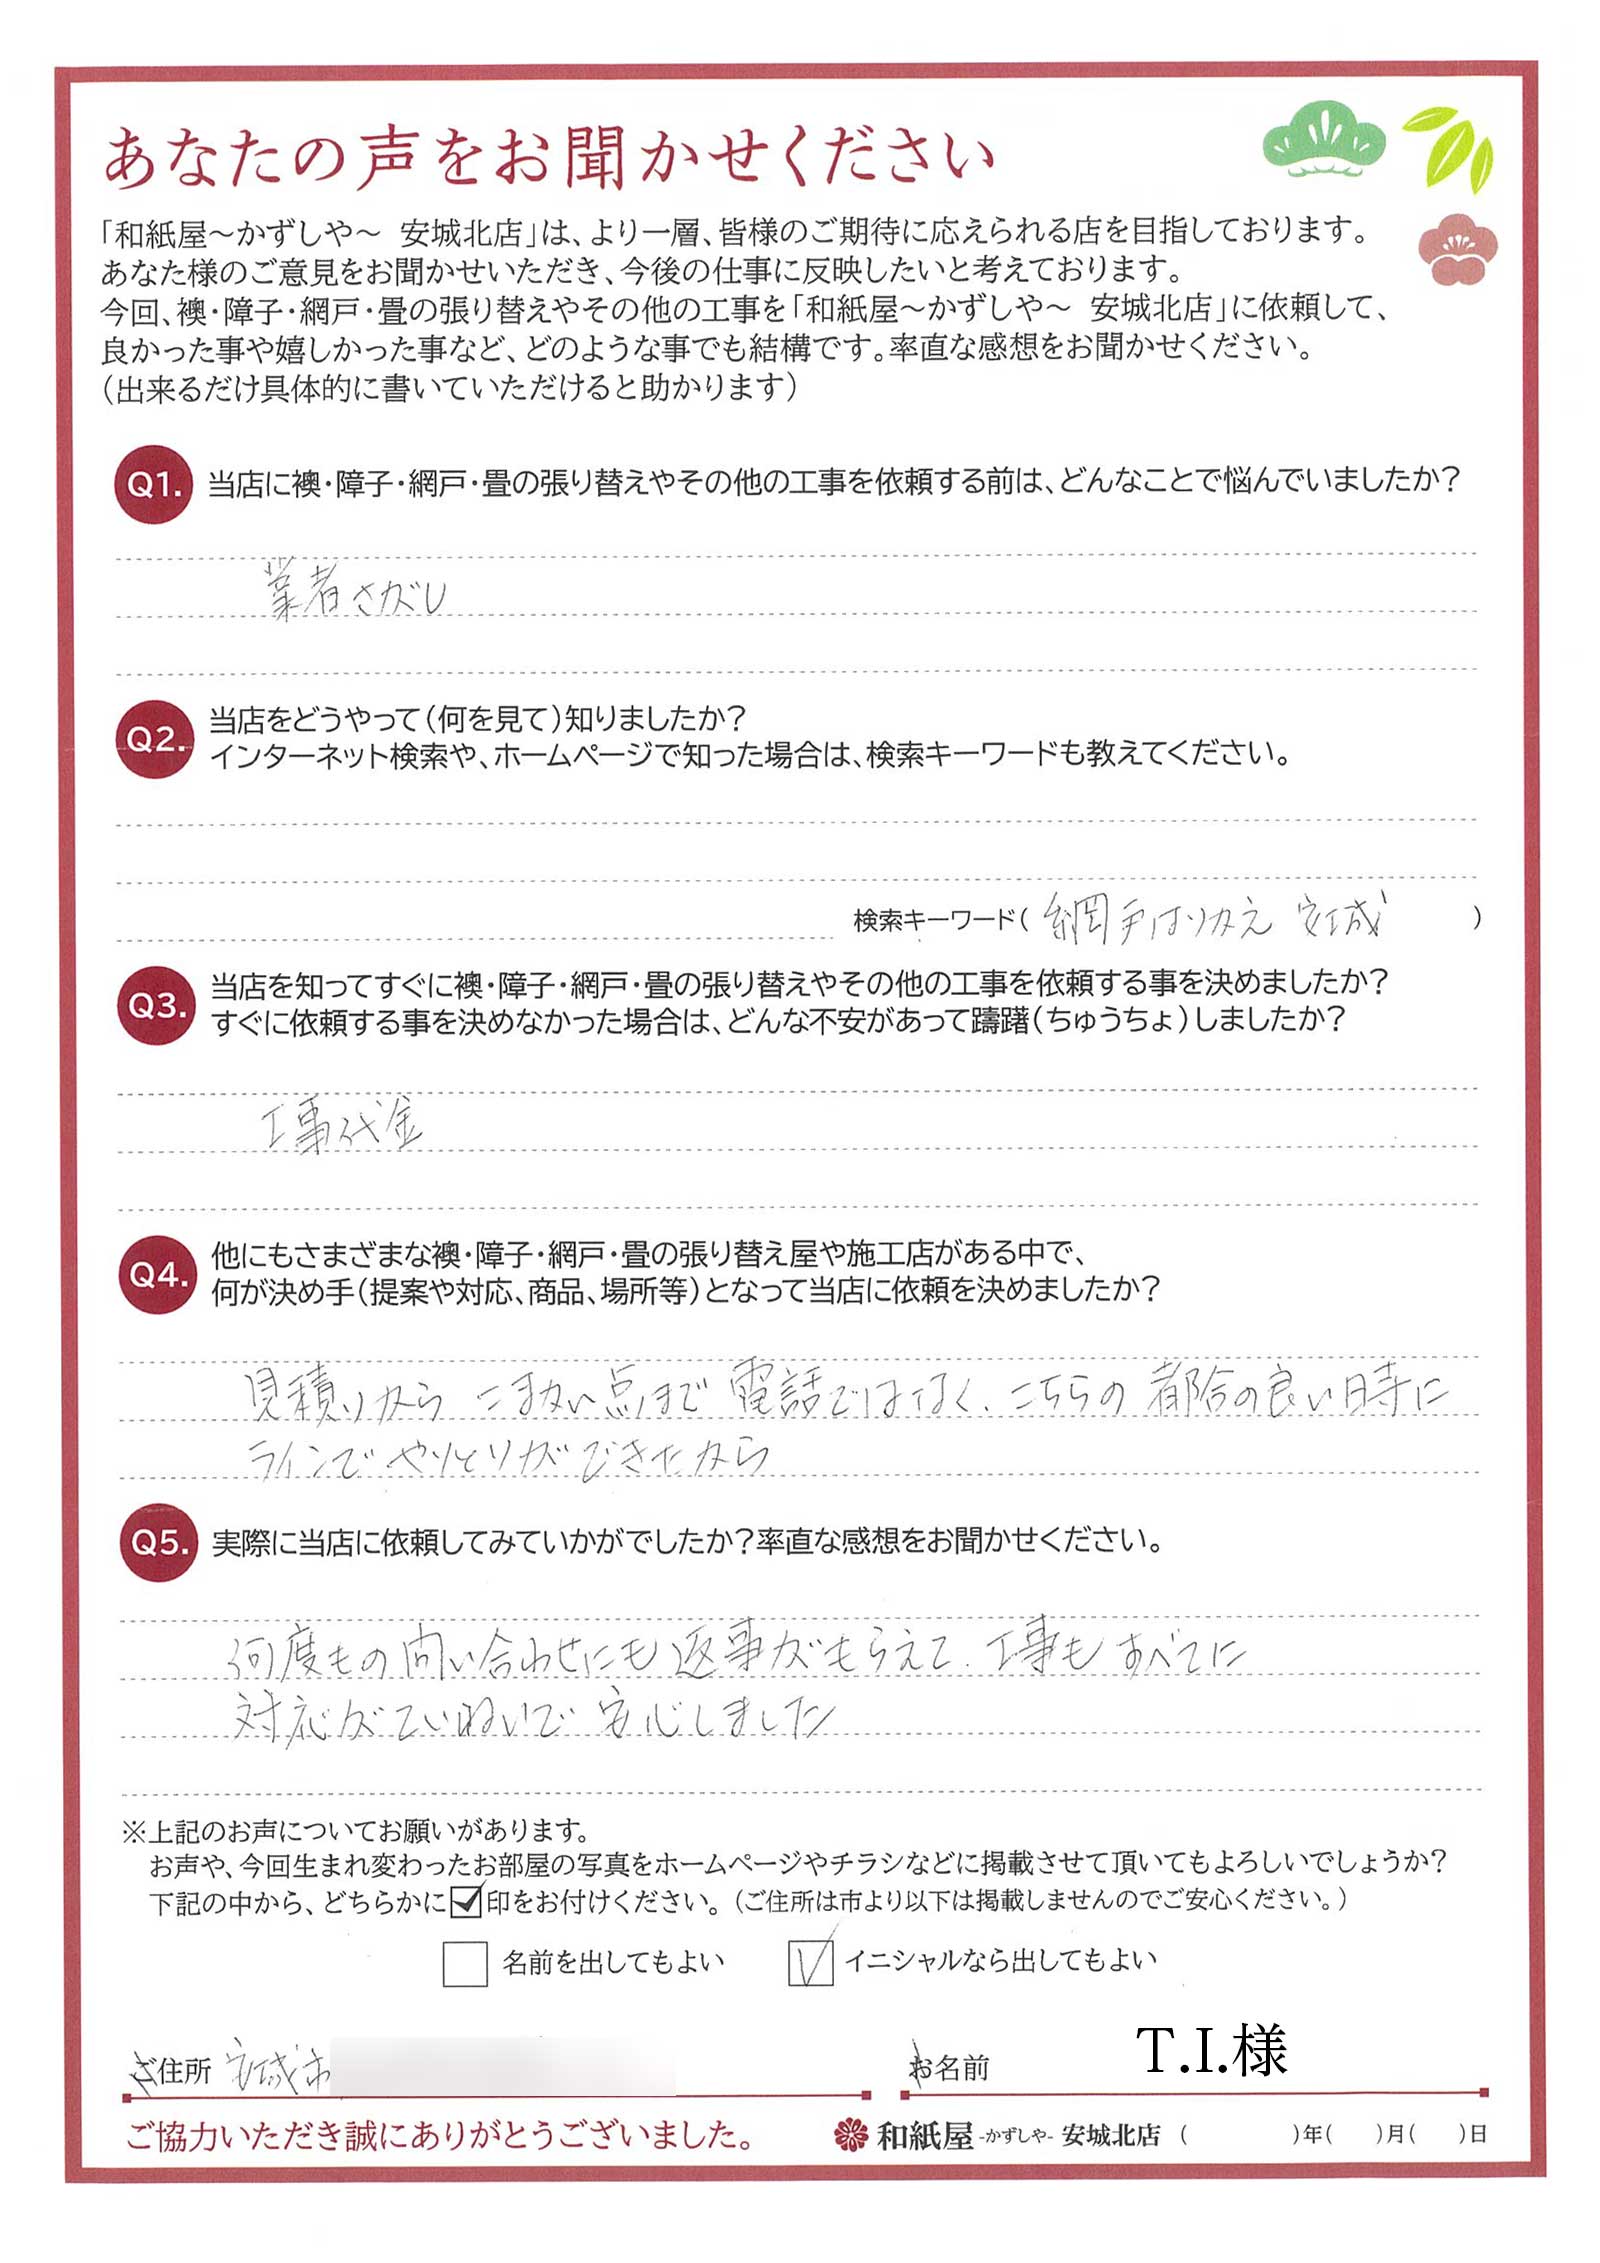 あなたの声をお聞かせください
「和紙屋～かずしや～ 安城北店」は、より一層、皆様のご期待に応えられる店を目指しております。
あなた様のご意見をお聞かせいただき、今後の仕事に反映したいと考えております。
今回、襖・障子・網戸・畳の張り替えやその他の工事を「和紙屋～かずしや～ 安城北店」に依頼して、
良かった事や嬉しかった事など、どのような事でも結構です。率直な感想をお聞かせください。
（出来るだけ具体的に書いていただけると助かります）
Q1. 当店に襖・障子・網戸・畳の張り替えやその他の工事を依頼する前は、どんなことで悩んでいましたか？
業者さがし
Q2. 当店をどうやって（何を見て）知りましたか？
インターネット検索や、ホームページで知った場合は、検索キーワードも教えてください。
検索キーワード（ 網戸はりかえ 安城 ）
Q3. 当店を知ってすぐに襖・障子・網戸・畳の張り替えやその他の工事を依頼する事を決めましたか？
すぐに依頼する事を決めなかった場合は、どんな不安があって躊躇（ちゅうちょ）しましたか？
工事代金
Q4. 他にもさまざまな襖・障子・網戸・畳の張り替え屋や施工店がある中で、
何が決め手（提案や対応、商品、場所等）となって当店に依頼を決めましたか？
見積りから こまかい点まで 電話ではなく、こちらの 都合の良い日時に
ラインで やりとりが できたから
Q5. 実際に当店に依頼してみていかがでしたか？率直な感想をお聞かせください。
何度もの 問い合わせにも 返事がもらえて、工事も すべてに
対応が ていねいで 安心しました
※上記のお声についてお願いがあります。
お声や、今回生まれ変わったお部屋の写真をホームページやチラシなどに掲載させて頂いてもよろしいでしょうか？
下記の中から、どちらかに☑印をお付けください。（ご住所は市より以下は掲載しませんのでご安心ください。）
□ 名前を出してもよい ☑ イニシャルなら出してもよい
ご住所 安城市 お名前 T.I.様
ご協力いただき誠にありがとうございました。 和紙屋 -かずしや- 安城北店 （ ）年（ ）月（ ）日